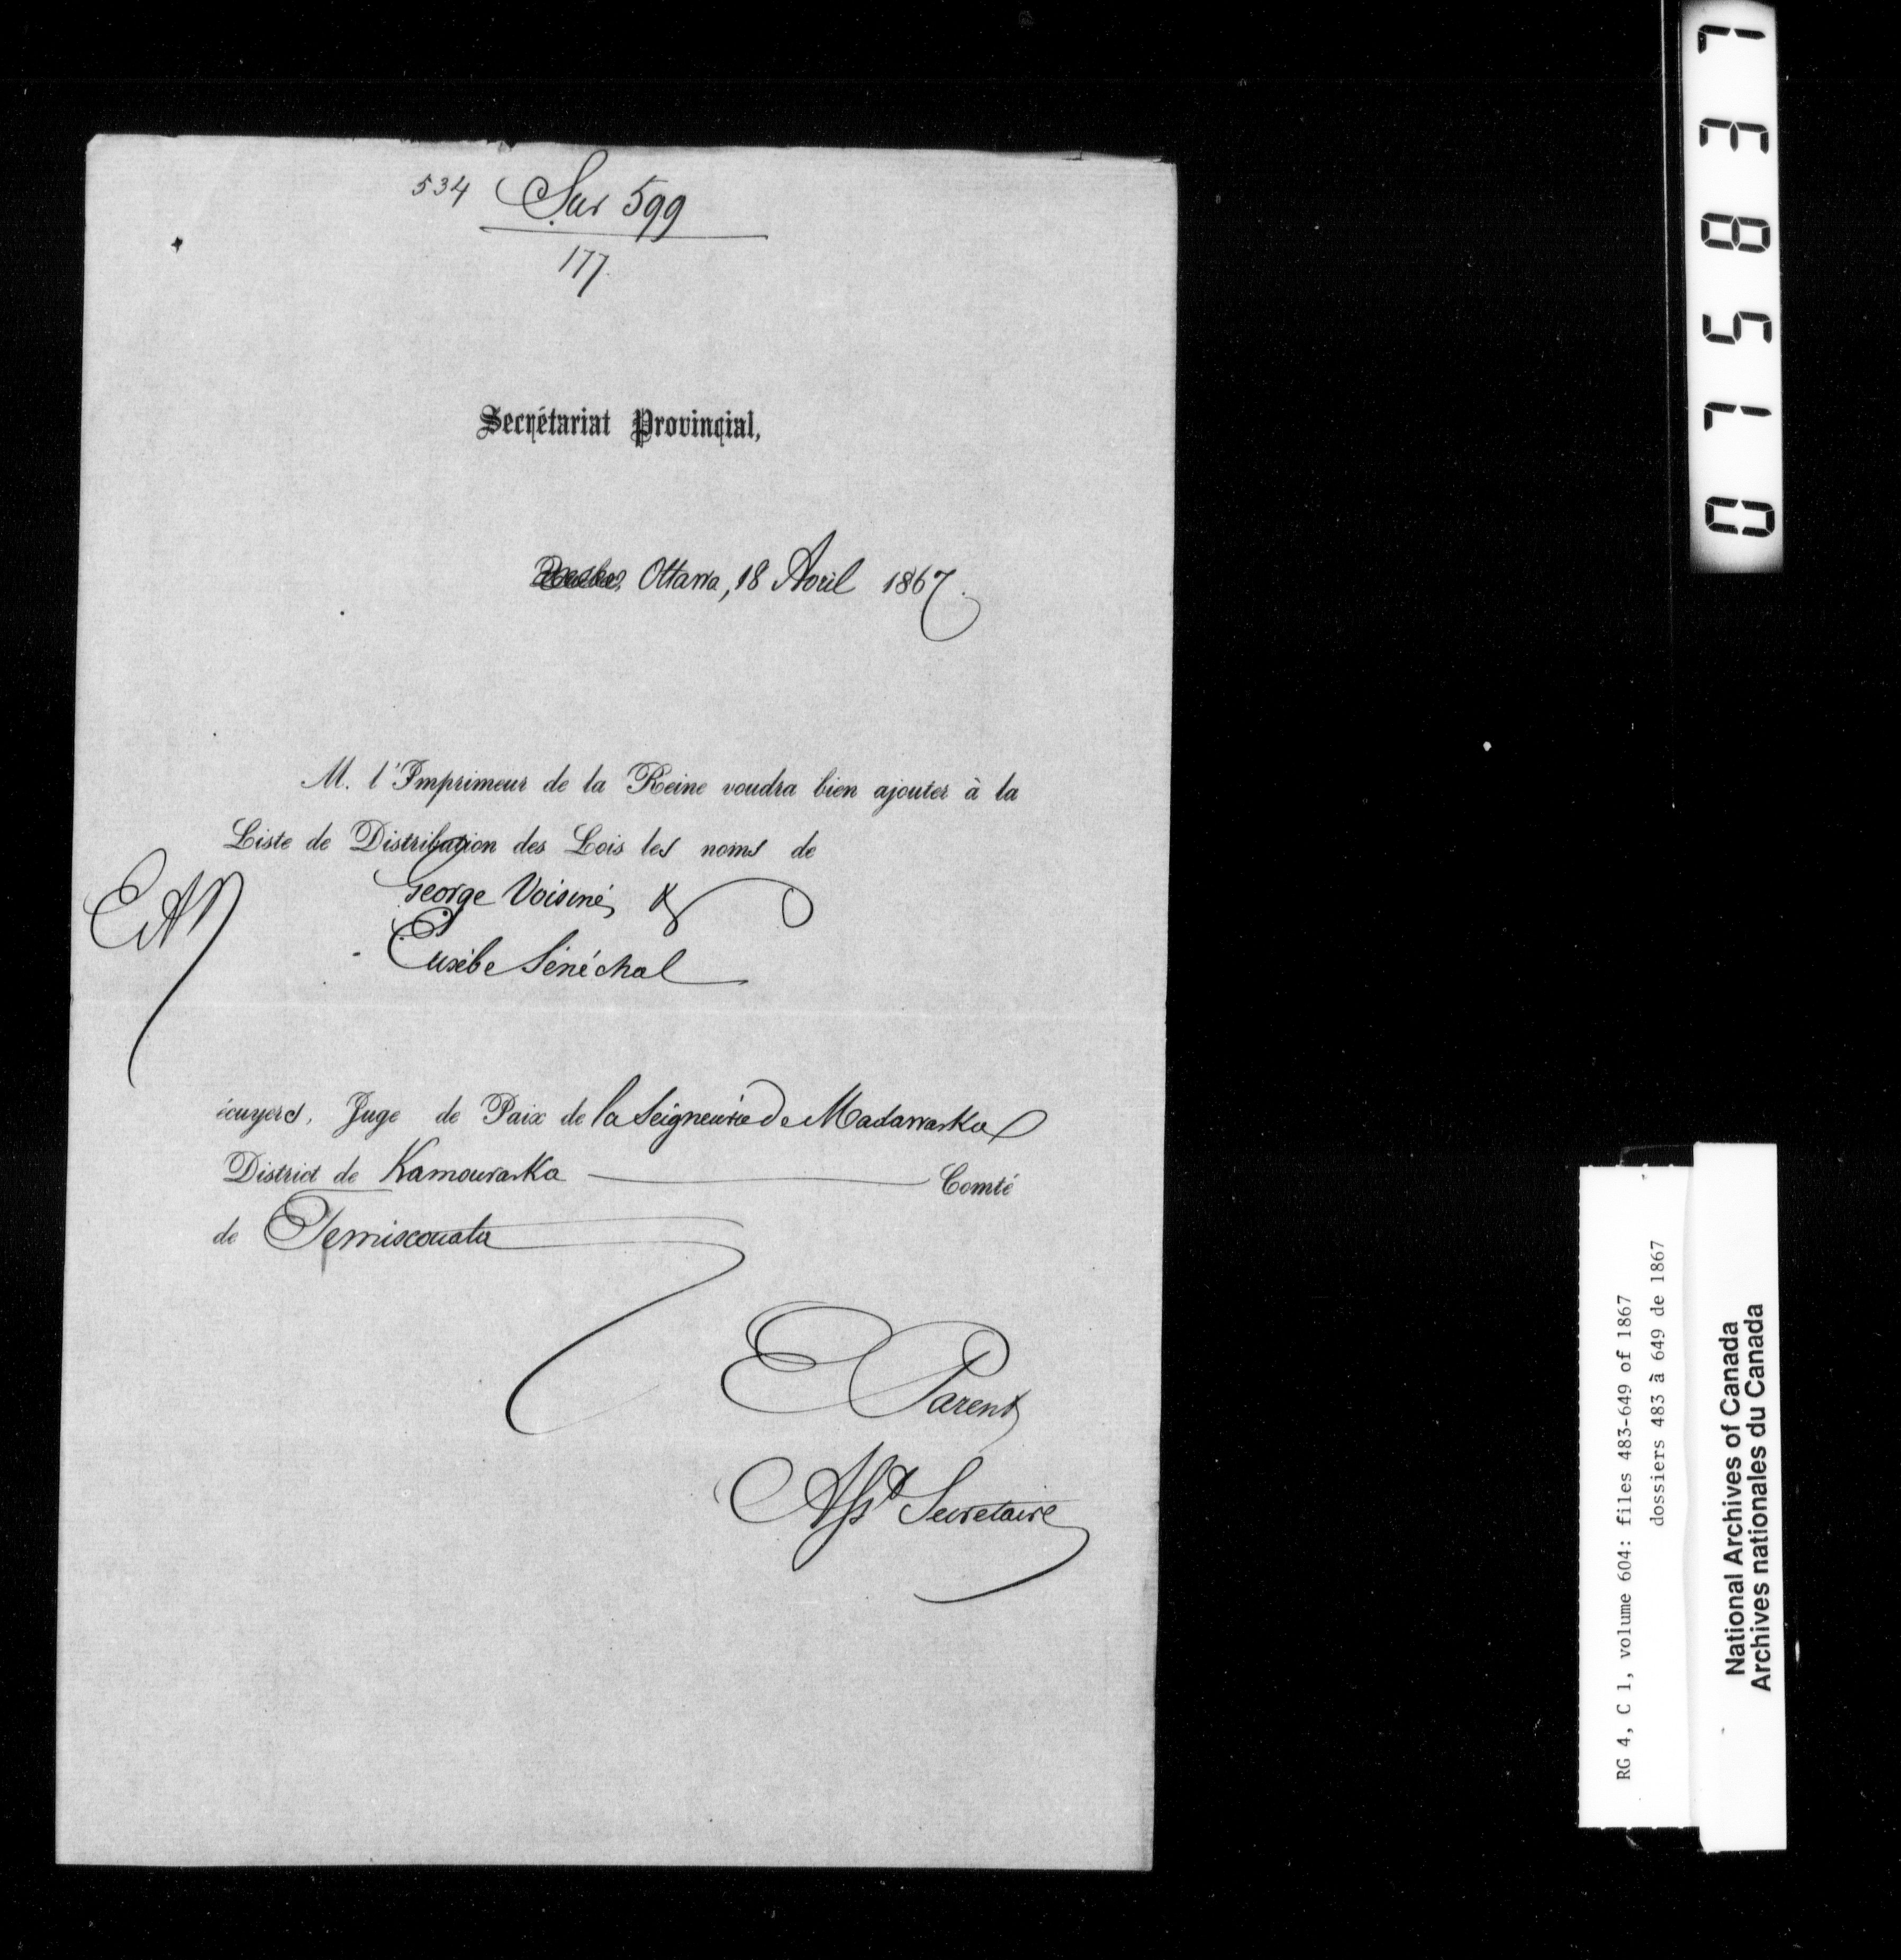 534 Sur 599
177
Secrétariat Provincial,
Ottawa, 18 Avril 1867.
M. l'Imprimeur de la Reine voudra bien ajouter à la
Liste de Distribution des Lois les noms de
George Voisiné, &
Eusèbe Sénéchal
écuyers, Juge de Paix de la Seigneurie de Madawaska
District de Kamouraska Comté
de Temiscouata
E Parent
Asst Secretaire
075837
RG 4, C 1, volume 604: files 483-649 of 1867
dossiers 483 à 649 de 1867
National Archives of Canada
Archives nationales du Canada